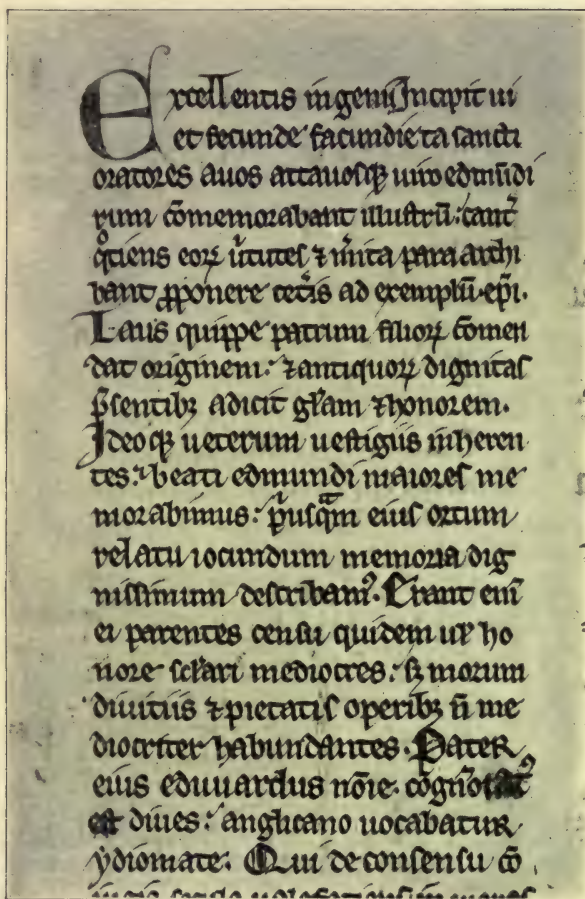 Excellentis ingenii Incipit ui
et fecunde facundie ta sancti
oratores auos attauosqꝫ uiro edmūdi
rum cōmemorabant illustrū: tantꝰ
qͦtiens eoꝝ ůtutes ⁊ mͥita para archi
bant ꝓponere cetͥs ad exemplū. ep̄i.
Laus quippe patrum filioꝝ comen
dat originem: ⁊ antiquoꝝ dignitas
p̄sentibꝫ adicit gl̄am ⁊ honorem.
Ideoqꝫ ueterum uestigiis inheren
tes: beati edmundi maiores me
morabimus: pͥusqᷓm eius ortum
relatu iocundum memoria dig
nissimum describamꝰ. Erant eni
ei parentes censu quidem uꝉ ho
nore sc̄lari mediocres: sꝫ morum
diuitiis ⁊ pietatis operibꝫ n̄ me
diocriter habundantes. Pater
eius eduuardus nōıe. cogn̄o
est diues: anglicano uocabatur
ydiomate: Qui de consensu cō